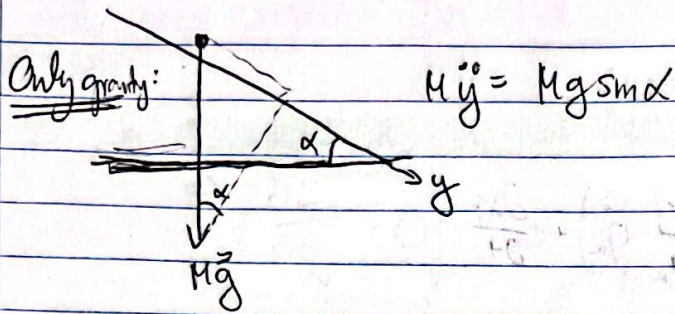 Only gravity:
Mÿ = Mg sinα
α
y
α
Mg⃗